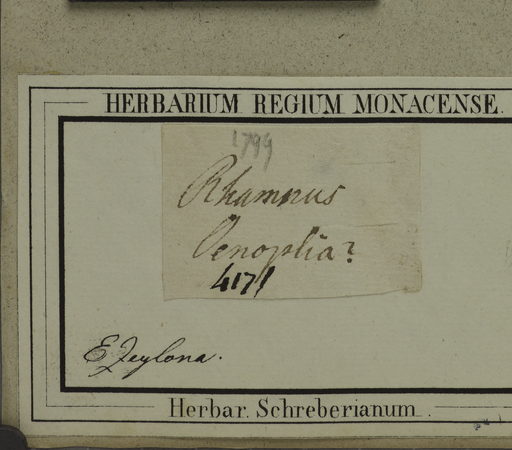 HERBARIUM REGIUM MONACENSE.
1799
Rhamnus
Oenoplia?
4171
E Zeylona.
Herbar. Schreberianum.